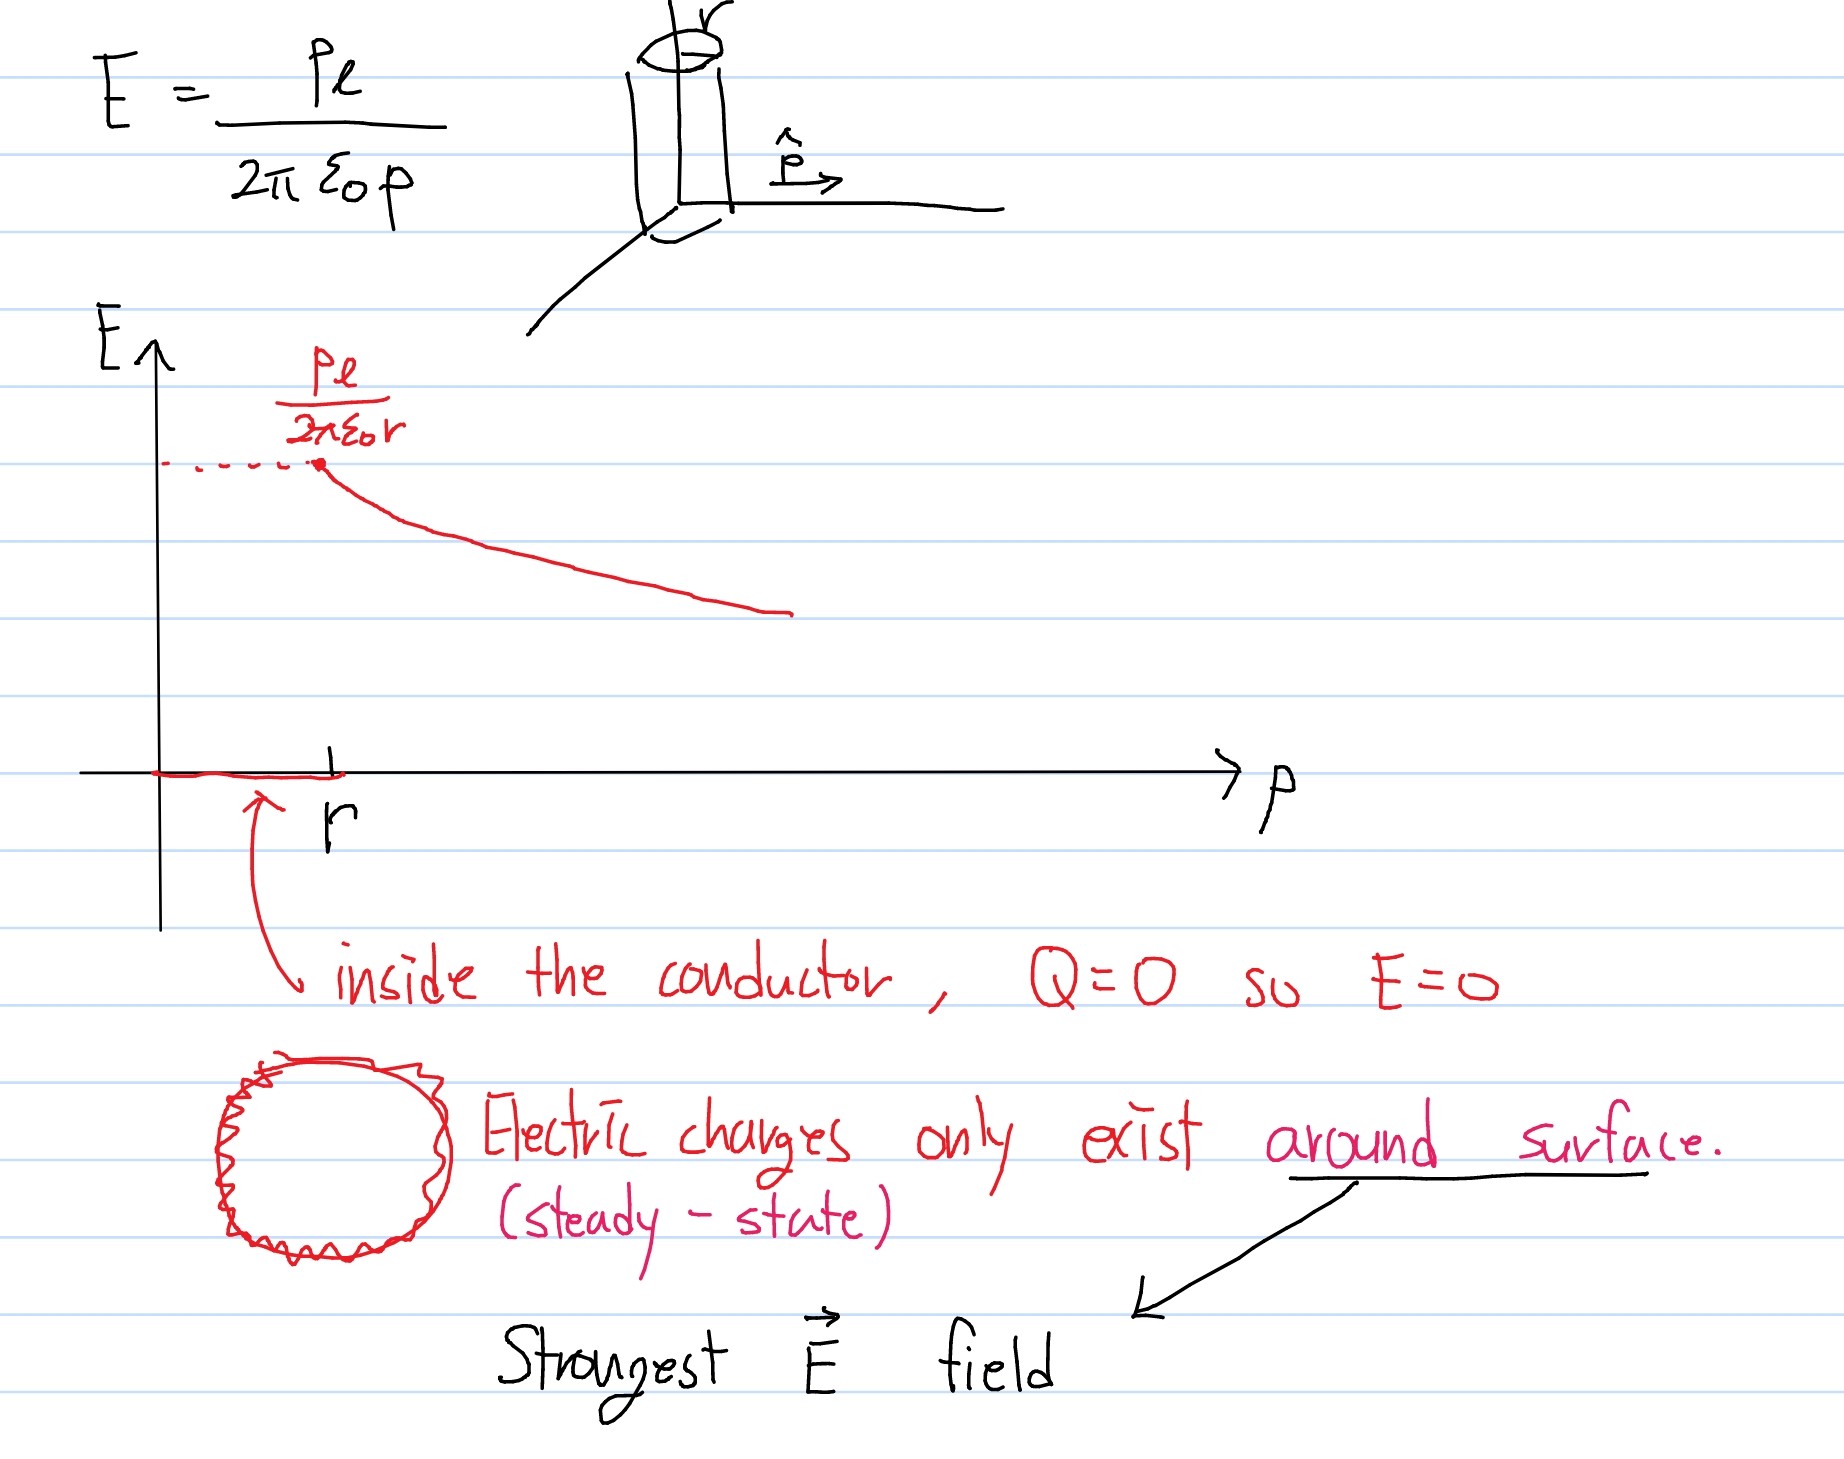 E = ρℓ / 2π ε₀ ρ
r
ρ̂
E
ρℓ / 2πε₀r
r
ρ
inside the conductor, Q=0 so E=0
Electric charges only exist around surface.
(steady-state)
Strongest E⃗ field